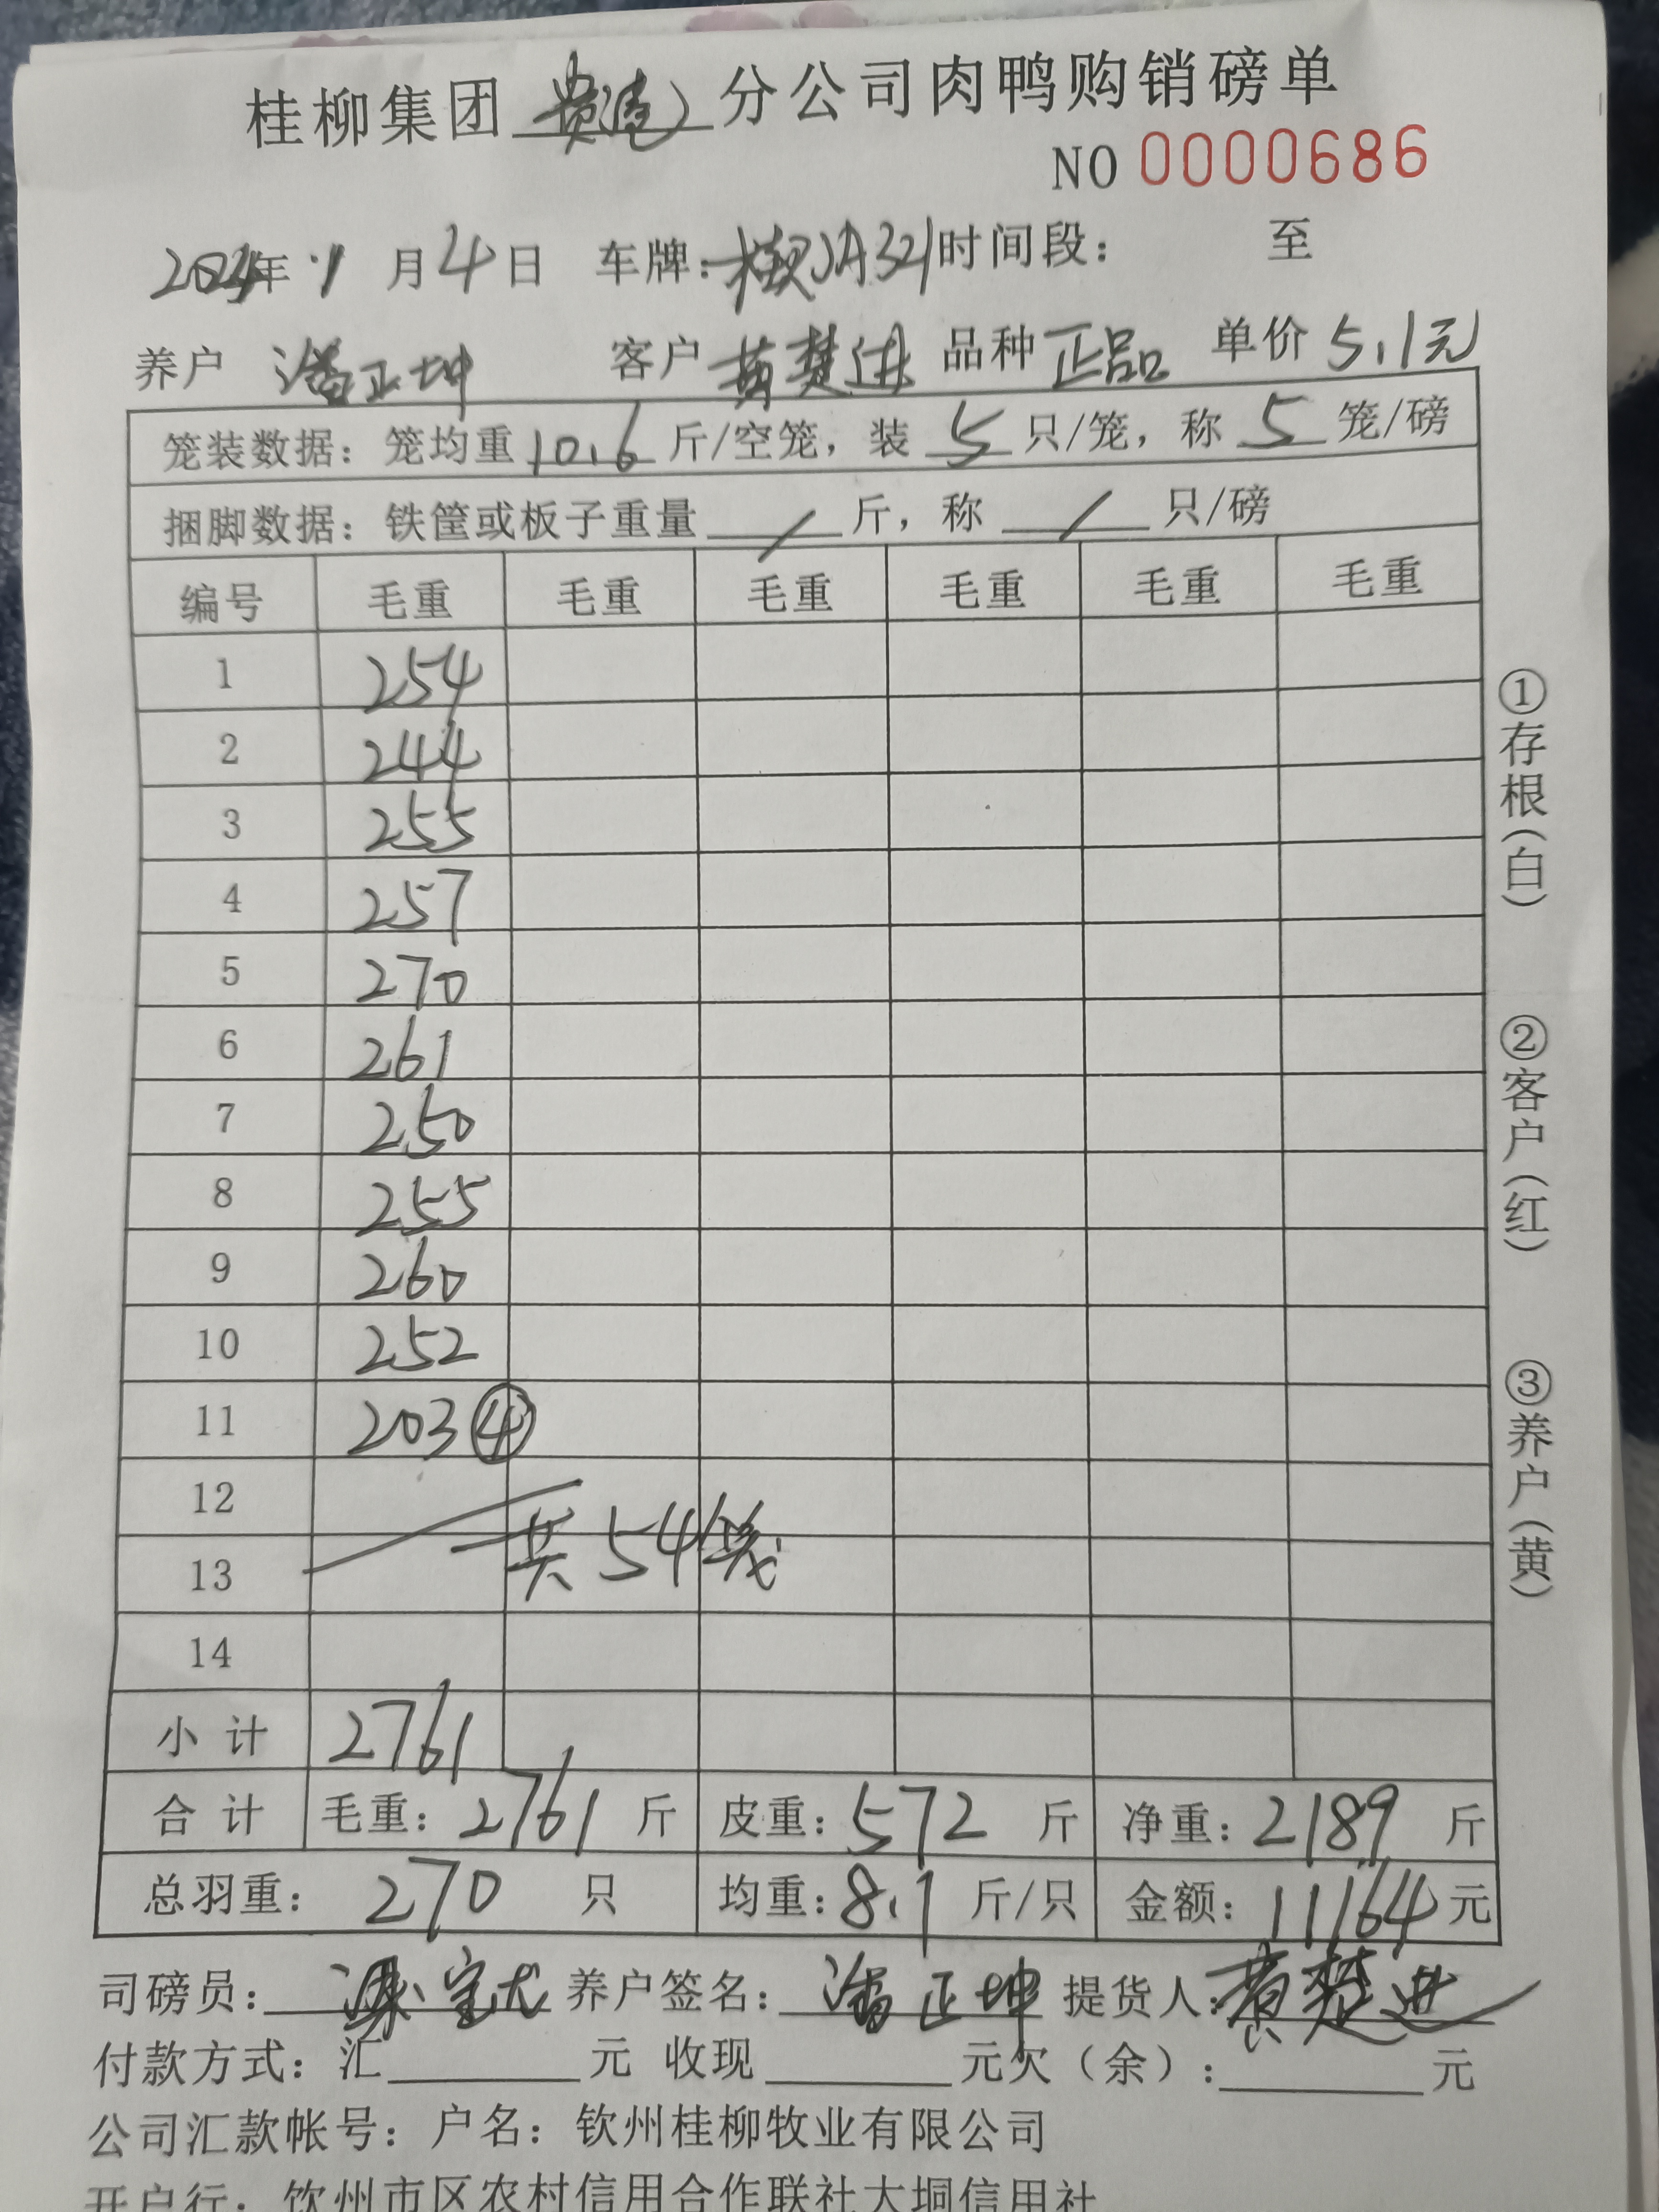 桂柳集团贵港分公司肉鸭购销磅单
NO 0000686
2024年 1 月 4 日 车牌: 时间段: 至
养户 潘正坤 客户 黄楚进 品种 正品 单价 5.1元
笼装数据: 笼均重 10.6 斤/空笼, 装 5 只/笼, 称 5 笼/磅
捆脚数据: 铁筐或板子重量 / 斤, 称 / 只/磅
编号 毛重 毛重 毛重 毛重 毛重 毛重
1 254
2 244
3 255
4 257
5 270
6 261
7 250
8 255
9 260
10 252
11 203 ④
12
13 共54笼
14
小计 2761
合计 毛重: 2761 斤 皮重: 572 斤 净重: 2189 斤
总羽重: 270 只 均重: 8.1 斤/只 金额: 11164 元
司磅员: 养户签名: 潘正坤 提货人: 黄楚进
付款方式: 汇 元 收现 元欠(余): 元
公司汇款帐号: 户名: 钦州桂柳牧业有限公司
开户行: 钦州市区农村信用合作联社大垌信用社
①存根(白)
②客户(红)
③养户(黄)